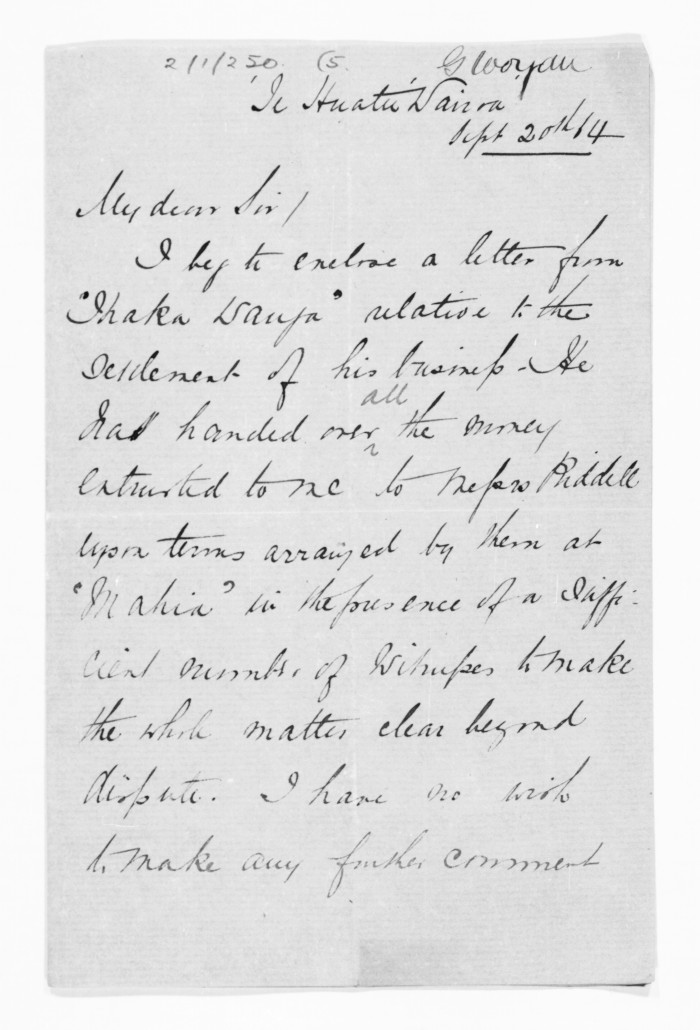 2/1/250. (5. G Worgan
"Te Huatu" Wairoa
Sept 20th 64
My dear Sir/
I beg to enclose a letter from
"Ihaka Wanga" relative to the
settlement of his business - He
has handed over ^all the money
entrusted to me to Messrs Riddell
upon terms arranged by them at
"Mahia" in the presence of a suffi-
cient number of Witnesses to make
the whole matter clear beyond
dispute. I have no wish
to make any further comment